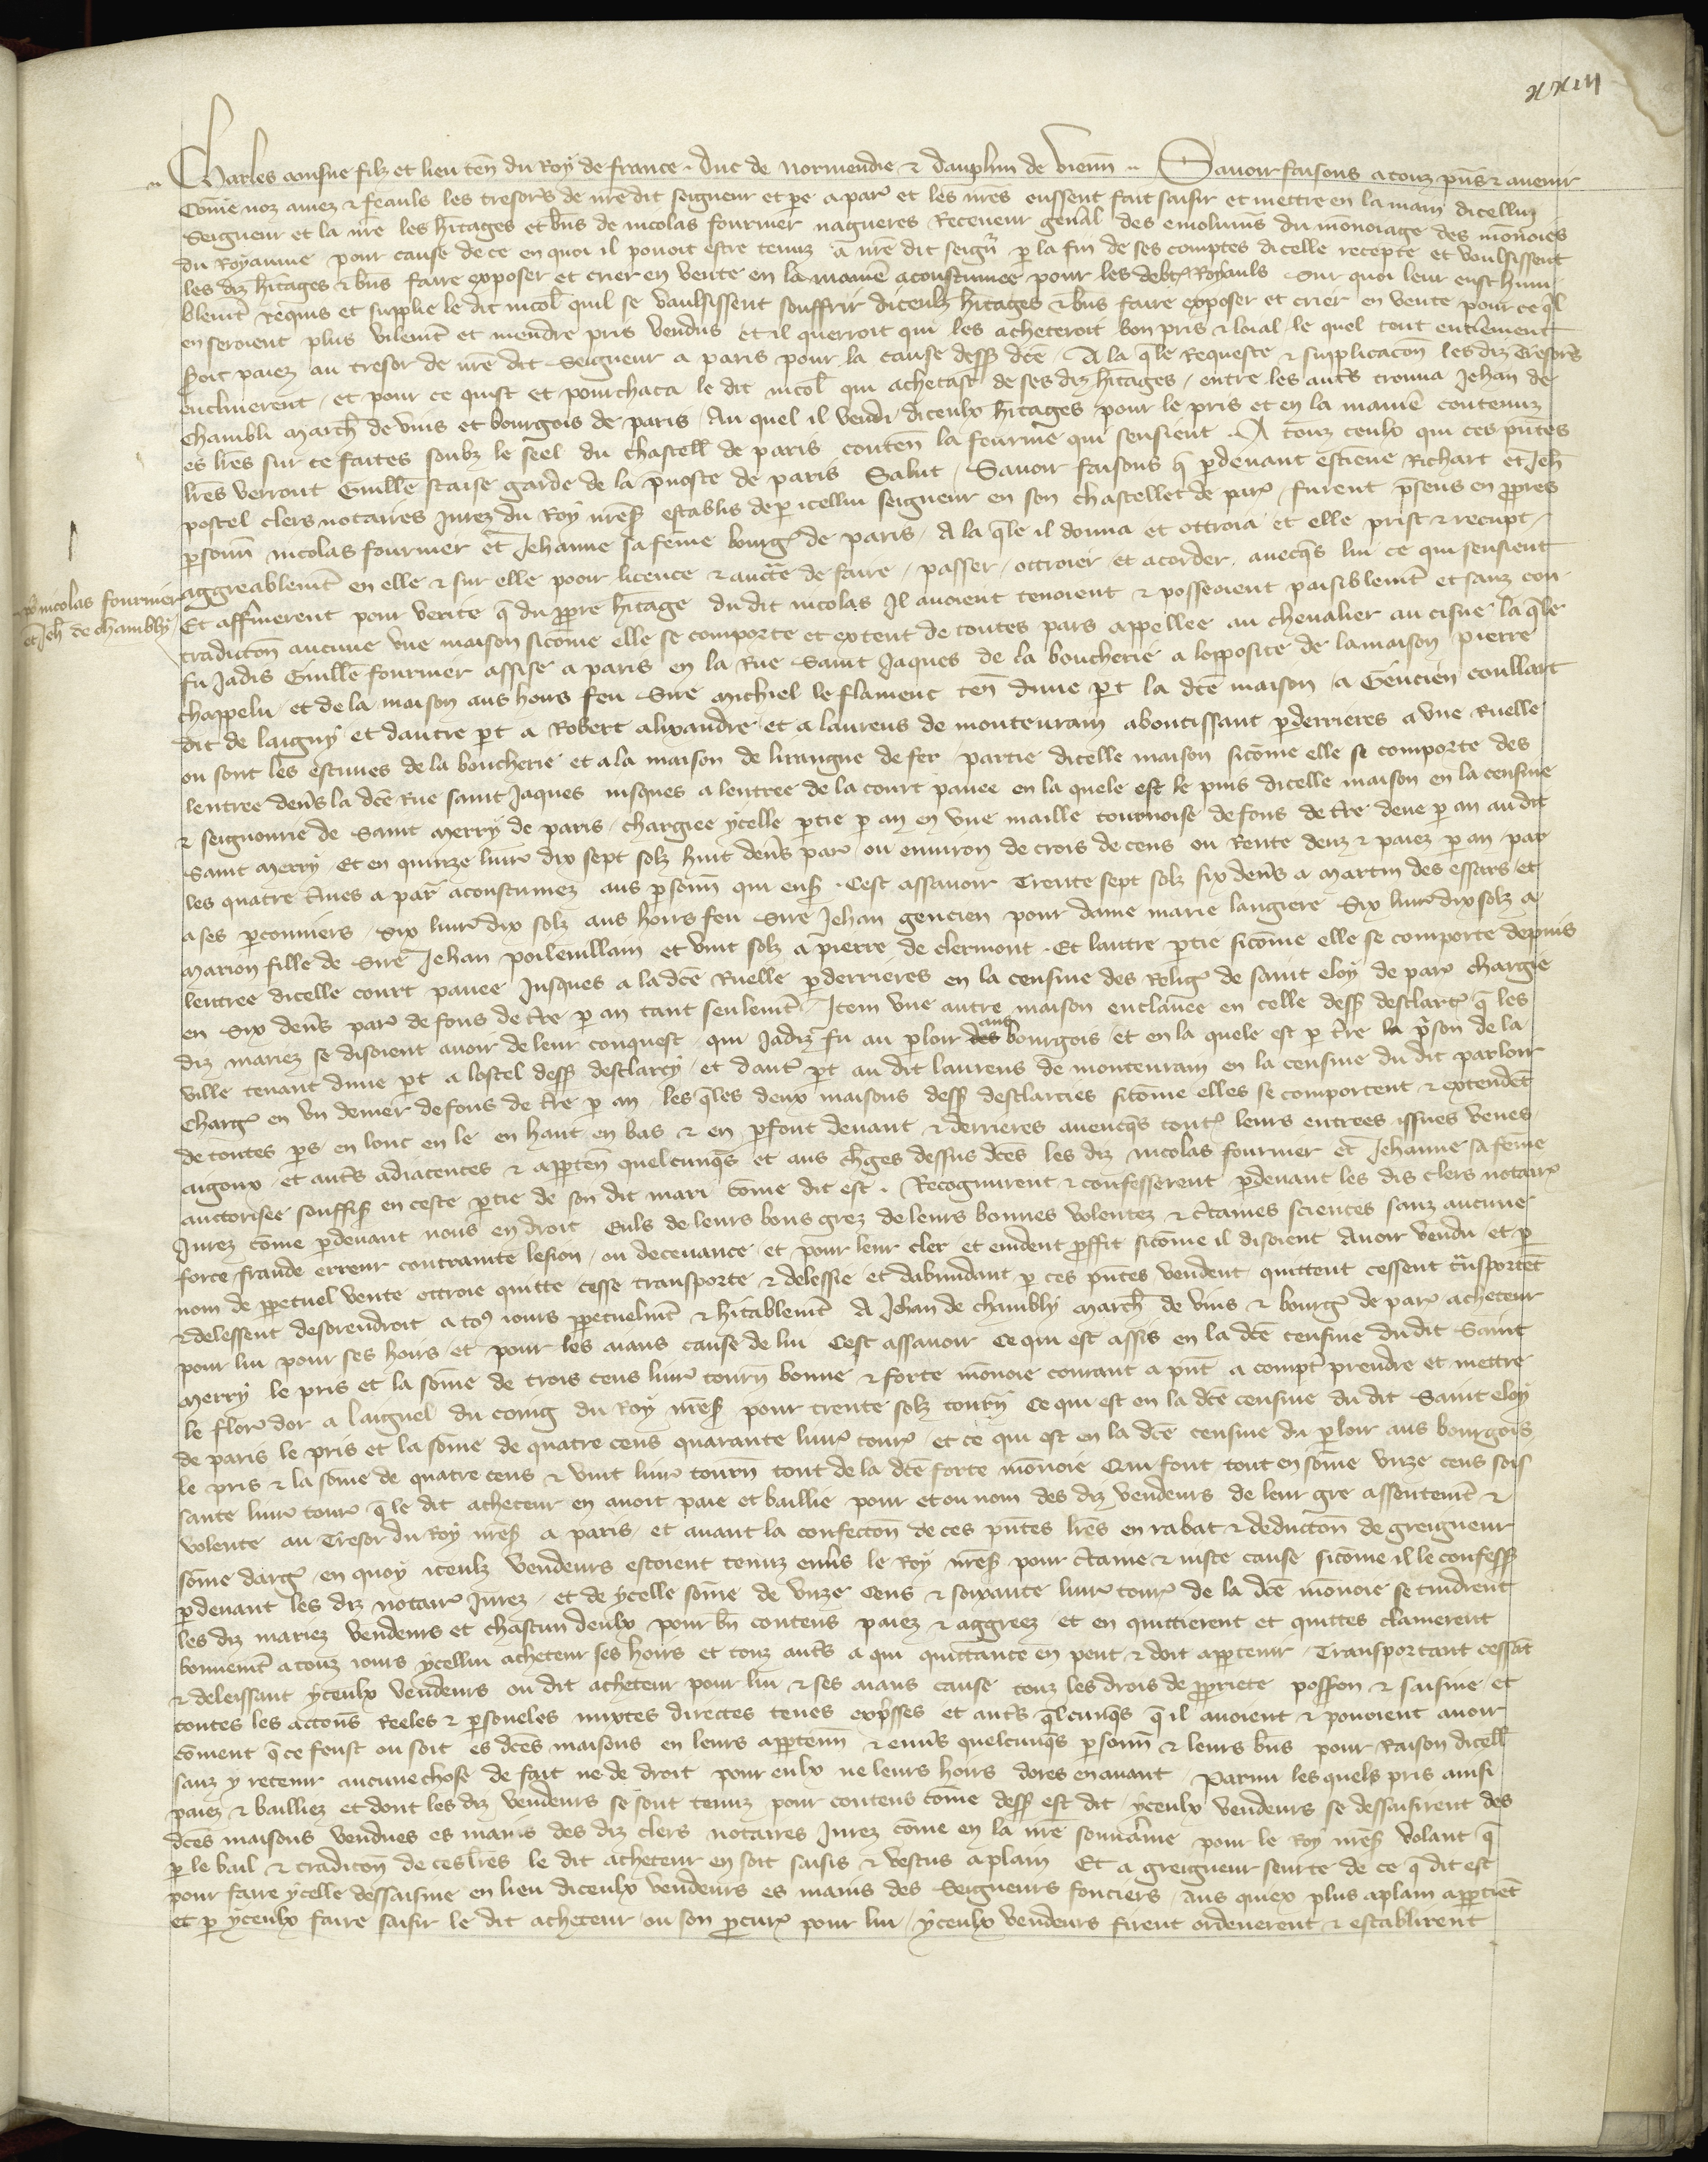 xxiii
Charles ainsne filz et lieuten̄ du Roy de france . Duc de Normendie & dauphin de Vienn̄ .. Savoir faisons a touz p̄ns & avenir
Com̄e noz amez & feauls les tresor̄s de nr̄e dit seigneur et pe a par̄ et les nr̄es eussent fait saisir et mettre en la main dicellui
Seigneur et la nr̄e les h̄itages et bn̄s de nicolas fournier nagueres Receveur gen̄al des emolumn̄s du mon̄oiage des mon̄oies
du Royaume pour cause de ce en quoi il povoit estre tenuz a nr̄e dit seign̄r p la fin de ses comptes dicelle recepte et voulsissent
les diz h̄itages & bn̄s faire exposer et crier en vente en la manie͞ acoustumee pour les debt͞ Royauls Sur quoi leur eust hum
blem̄t requis et supplie le dit nicol̄ quil se vaulsissent souffrir diceulz h̄itages & bn̄s faire exposer et crier en vente pour ce q̄l
en seroient plus vilem̄t et mendre pris vendus et il querroit qui les acheteroit bon pris & loial le quel tout entieremen̄t
soit paiez au tresor de nr̄e dit Seigneur a paris pour la cause dess̄ dc̄e . A la q̄le Requeste & supplicacon̄ les diz Tresor̄s
enclinerent / et pour ce quist et pourchaca le dit nicol̄ qui achetast de ses diz h̄itages / entre les autr̄s trouva Jehan de
Chambli march̄ de vins et bourgois de paris / Au quel il vendi diceulx h̄itages pour le pris et en la manie͞ contenuz
es lr̄es sur ce faites soubz le seel du chastell̄ de paris conten̄ la fourme qui sensieut . A touz ceulx qui ces pn̄tes
lr̄es verront Guille͞ Staise garde de la p̄voste de paris Salut / Savoir faisons q̄ p devant estiene Richart et Jeh̄
postel clers notaires Jurez du Roy nr̄es̄ establis de p icellui seigneur en son chastellet de par͞ / furent p̄sens en ppres
psonn̄ nicolas fournier et Jehanne sa fem̄e bourg͞ de paris / A la q̄le il donna et ottroia et elle prist & recupt /
aggreablem̄t en elle & sur elle pooir licence & auct̄te de faire / passer / ottroier et acorder / avecq̄s lui ce qui sensieut
Et affirmerent pour verite q̄ du ppre h̄itage du dit nicolas Il avoient tenoient & possedoient paisiblem̄t et sanz con
tradicton̄ aucune une maison sicom̄e elle se comporte et extent de toutes pars appellee au chevalier au cisne la q̄le
fu Jadis Guille͞ fournier assise a paris en la Rue Saint Jaques de la boucherie a lopposite de la maison pierre
chappelu / et de la maison aus hoirs feu Sire Michiel le flament ten̄ dune pt la dc̄e maison / a Gencien coullart
dit de laigny et dautre pt a Robert alixandre et a laurens de montevrain aboutissant p derrieres a une Ruelle
ou sont les estuves de la boucherie et a la maison de hrangue de fer / partie dicelle maison sicom̄e elle se comporte des
lentree den̄s la dc̄e Rue saint Jaques iusques a lentree de la court pavee en la quele est le puis dicelle maison en la censive
& seignourie de Saint Merry de paris / chargiee ycelle ptie p an en une maille tournoise de fons de tr̄e deue p an au dit
Saint Merry Et en quinze livr͞ dix sept solz huit den̄s par͞ ou environ de crois de cens ou Rente deuz & paiez p an par
les quatre tm̄es a par͞ acoustumez aus psonn̄ qui ens̄ . Cest assavoir Trente sept solz six den̄s a Martin des essars et
a ses pconniers / Six livr͞ dix solz aus hoirs feu Sire Jehan gencien pour dame marie langiere Six livr͞ dix solz a
Marion fille de Sire Jehan poilevillain et vint solz a pierre de clermont . Et lautre ptie sicom̄e elle se comporte depuis
lentree dicelle court pavee Jusques a la dc̄e Ruelle p derrieres en la censive des Relig͞ de saint eloy de par͞ chargie
en Six den̄s par͞ de fons de tr̄e p an tant seulem̄t / Item une autre maison enclavee en celle dess̄ desclar̄t͞ q̄ les
diz mariez se disoient avoir de leur conquest qui Jadiz fu au ploir aus bourgois / et en la quele est p tr̄e la p̄son de la
ville tenant dune pt a lostel dess̄ desclarcy et daut͞ pt au dit laurens de montevrain en la censive du dit parloir
Charg͞ en un denier de fons de tr̄e p an / les q̄les deux maisons dess̄ desclarcies sicom̄e elles se comportent & extendet̄
de toutes ps en lonc en le en haut en bas & en pfont devant & derrieres avecq̄s tout͞ leurs entrees issues veues
aigoux / et autr̄s adiacences & apptēn quelcunq̄s et aus ch̄ges dessus dc̄es les diz nicolas fournier et Jehanne sa fem̄e
auctorisee souffis̄ en ceste ptie de son dit mari com̄e dit est . Recognurent & confesserent p devant les dis clers notair͞
Jurez com̄e p devant nous en droit Euls de leurs bons grez de leurs bonnes volentez & ct̄aines sciences sanz aucune
force fraude erreur contrainte lesion / ou decevance / et pour leur cler et evident pffit sicom̄e il disoient Avoir vendu / et p
nom de ppetuel vente ottroie quitte cesse transporte & delessie et dabundant p ces pn̄tes vendent quittent cessent tn̄sportet̄
& delessent desorendroit a to9 iours ppetuelm̄t & h̄itablem̄t A Jehan de chambly march̄ de vins & bourg͞ de par͞ acheteur
pour lui pour ses hoirs et pour les aians cause de lui Cest assavoir Ce qui est assis en la dc̄e censive du dit Saint
Merry le pris et la som̄e de trois cens livr͞ tourn̄ bonne & forte mon̄oie courant a pn̄t a compt̄ prendre et mettre
le flor͞ dor a laignel du coing du Roy nr̄es̄ pour trente solz tourn̄ Ce qui est en la dc̄e censive du dit Saint eloy
de paris le pris et la som̄e de quatre cens quarante livr͞ tour͞ / et ce qui est en la dc̄e censive du ploir aus bourgois
le pris & la som̄e de quatre cens & vint livr͞ tourn̄ tout de la dc̄e forte mon̄oie Qui font tout en som̄e unze cens sois
sante livr͞ tour͞ q̄ le dit acheteur en avoit paie et baillie pour et ou nom des diz vendeurs de leur gre assentem̄t &
volente au Tresor du Roy nr̄es̄ a paris / et avant la confecton̄ de ces pn̄tes lr̄es en rabat & deducton̄ de greigneur
som̄e darg͞ en quoy iceulz vendeurs estoient tenuz env̄s le Roy nr̄es̄ pour ct̄aine & iuste cause sicom̄e il le confess̄
p devant les diz notair͞ Jurez / et de ycelle som̄e de unze Cens & soixante livr͞ tour͞ de la dc̄e mon̄oie se tindrent
les diz mariez vendeurs et chascun deulx pour bn̄ contens paiez & aggreez et en quittierent et quittes clamerent
bonnem̄t a touz iours ycellui acheteur ses hoirs et touz autr̄s a qui quittance en peut & doit apptenir / Transportant cessāt
& delaissant yceulx vendeurs ou dit acheteur pour lui & ses aians cause touz les drois de ppriete poss̄on & saisine et
toutes les acton̄s Reeles & psoneles mixtes directes teues exp̄sses et autr̄s q̄lcunq̄s q̄ il avoient & povoient avoir
com̄ent q̄ ce feust ou soit es dc̄es maisons en leurs apptenn̄ & env̄s quelcunq̄s psonn̄ & leurs bn̄s pour Raison dicell̄
sanz y retenir aucune chose de fait ne de droit pour eulx ne leurs hoirs dores en avant / Parmi les quels pris ainsi
paiez & bailliez et dont les diz vendeurs se sont tenuz pour contens com̄e dess̄ est dit / yceulx vendeurs se dessaisirent des
dc̄es maisons vendues es mains des diz clers notaires Jurez com̄e en la nr̄e souv̄aine pour le Roy nr̄es̄ volant q̄
p le bail & tradicon̄ de ces lr̄es le dit acheteur en soit saisis & vestus a plain Et a greigneur seurte de ce q̄ dit est
pour faire ycelle dessaisine en lieu diceulx vendeurs es mains des Seigneurs fonciers / Aus quiex plus a plain apptiēt
et p yceulx faire saisir le dit acheteur / ou son pcur͞ pour lui / yceulx vendeurs firent ordenerent & establirent
p͞ nicolas fournier
et Jeh̄ de chambly